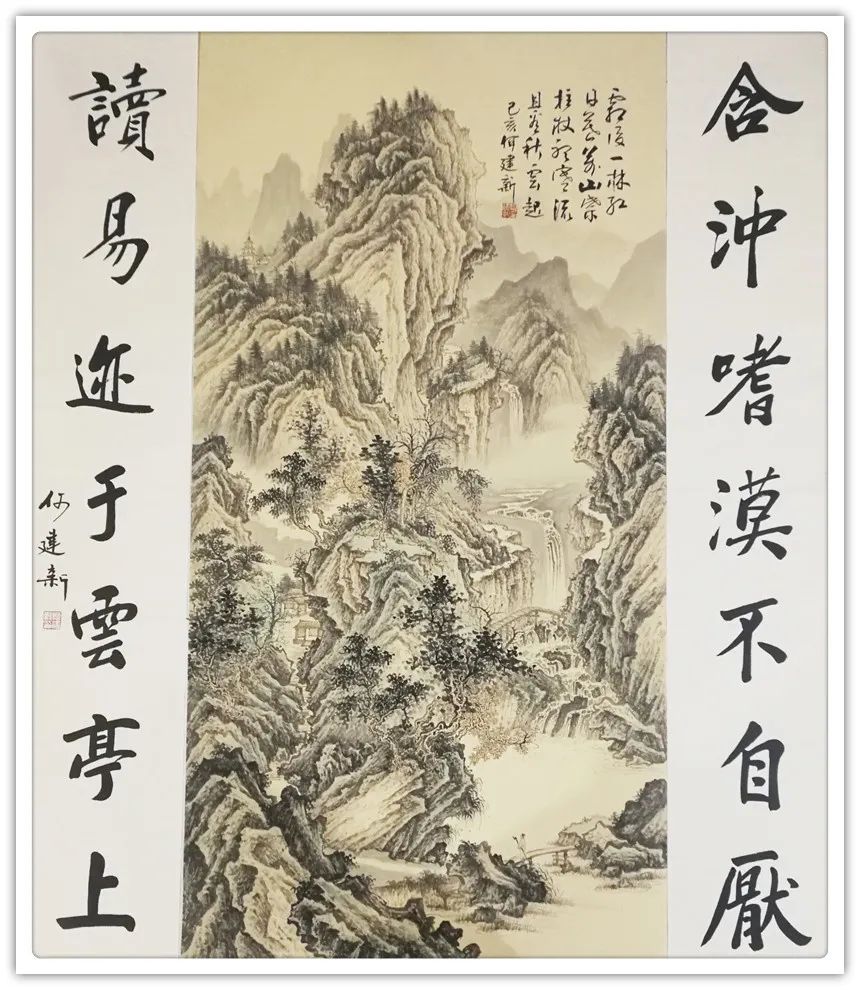 含沖嗜漠不自厭
霜後一林紅
日暮萬山紫
拄杖聽寒流
且看秋雲起
己亥何建新
讀易迹于雲亭上
何建新